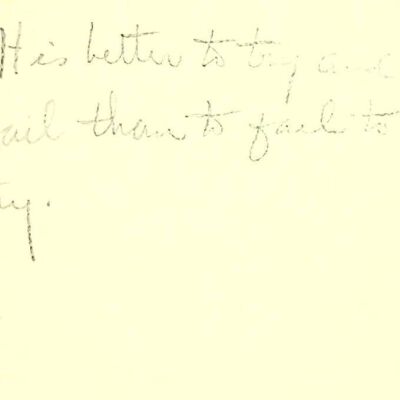 It is better to try and
fail than to fail to
try.